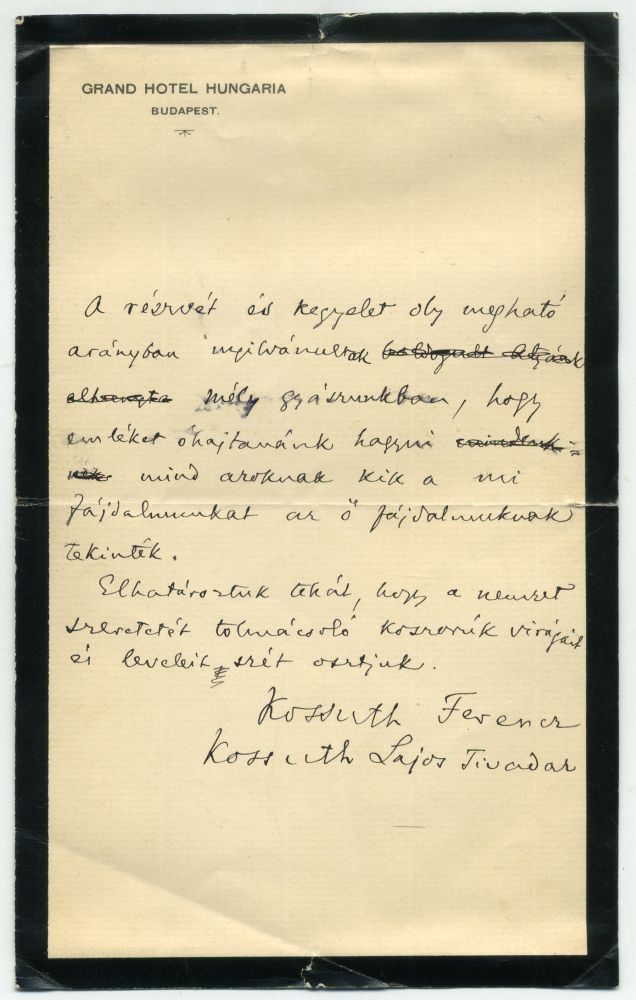 GRAND HOTEL HUNGARIA
BUDAPEST.
A részvét és kegyelet oly megható
arányban nyilvánultak boldogult Atyánk
elhangzta mély gyászunkban, hogy
emléket óhajtanánk hagyni mindenki-
nek mind azoknak kik a mi
fájdalmunkat az ő fájdalmuknak
tekinték.
Elhatároztuk tehát, hogy a nemzet
szeretetét tolmácsoló koszorúk virágait
és leveleit szét osztjuk.
Kossuth Ferencz
Kossuth Lajos Tivadar